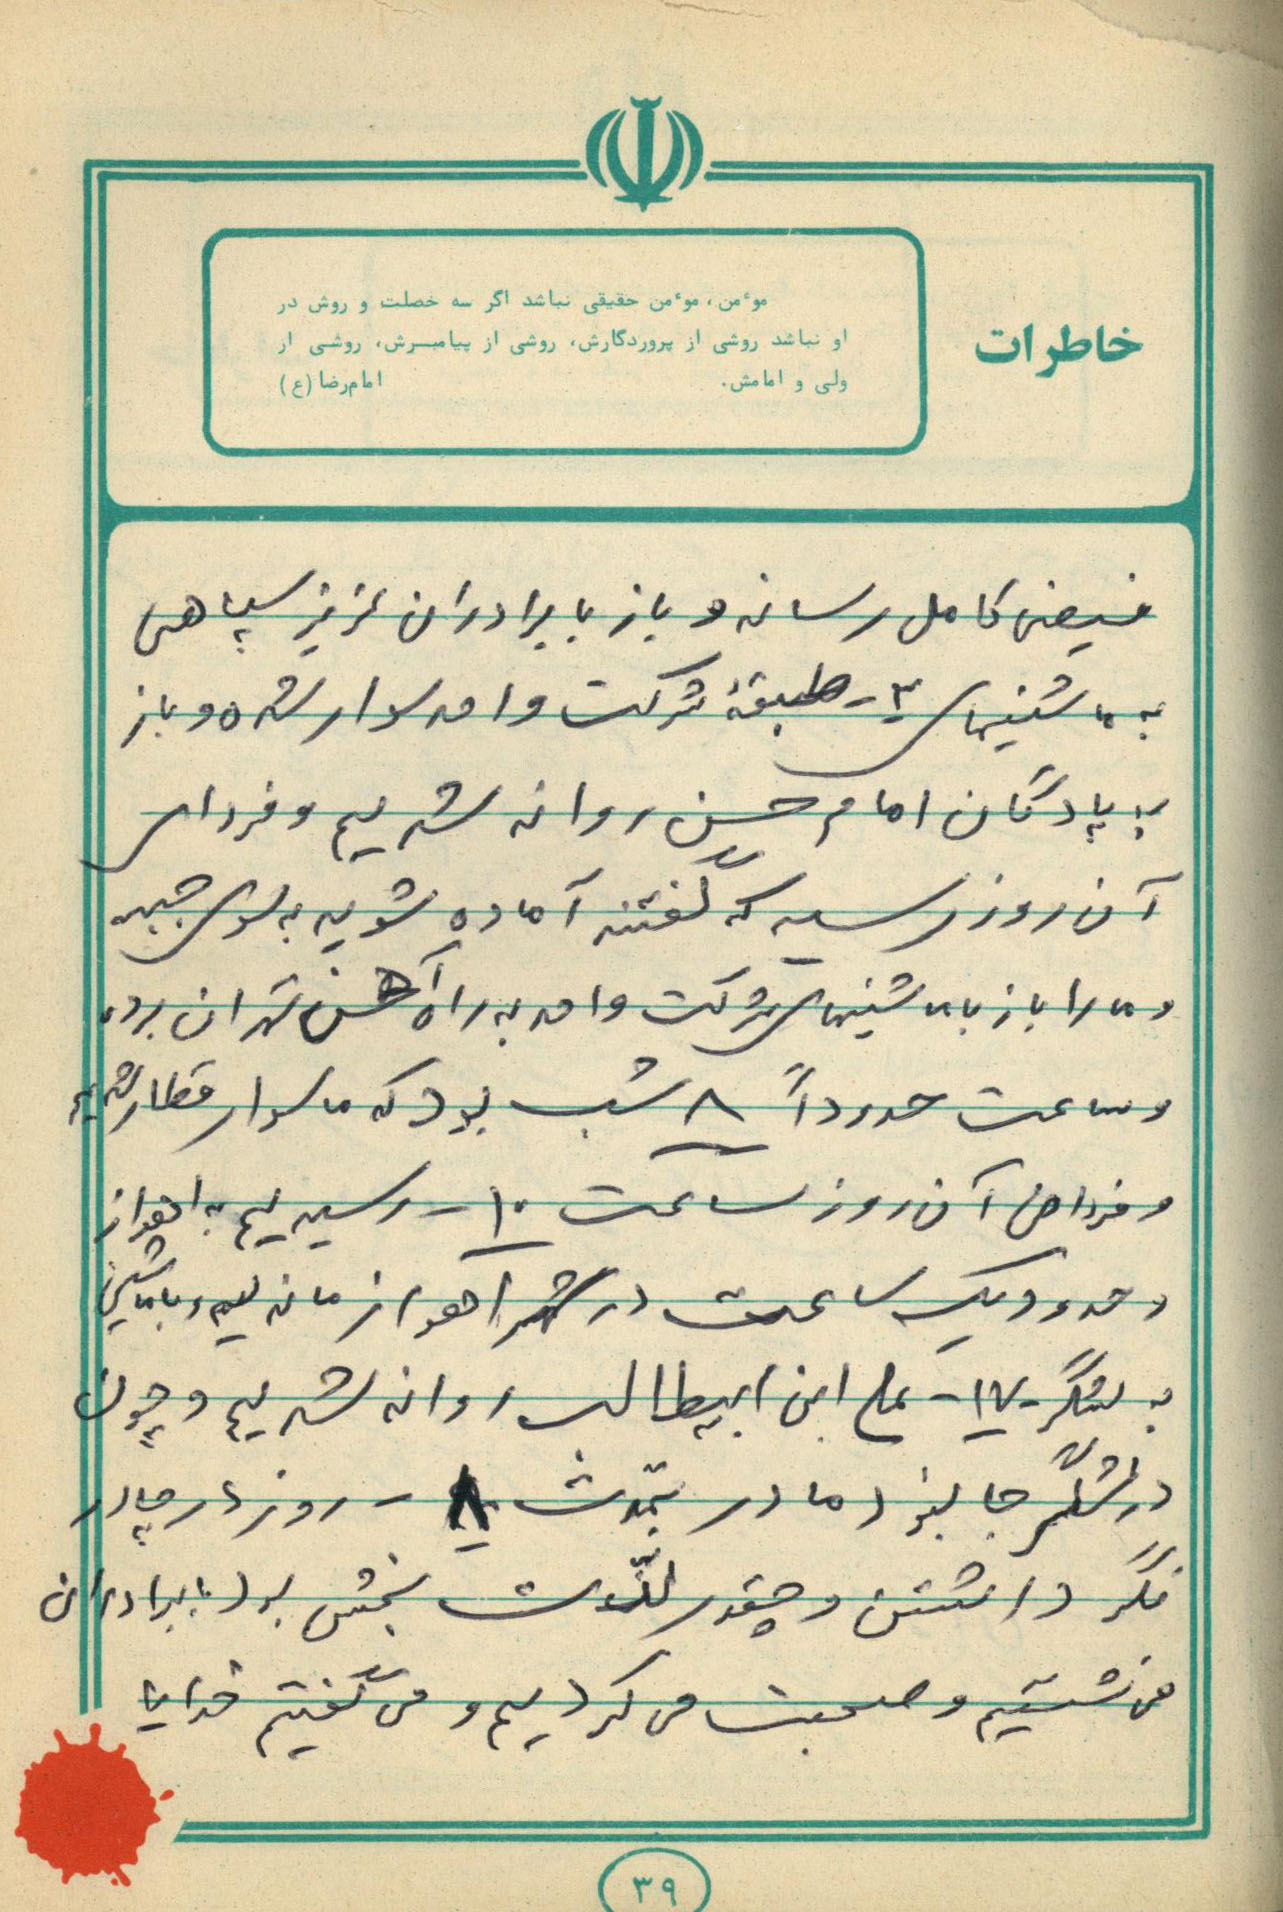 خاطرات
موٴمن، موٴمن حقیقی نباشد اگر سه خصلت و روش در
او نباشد روشی از پروردگارش، روشی از پیامبرش، روشی از
ولی و امامش. امام‌رضا (ع)
فیض کامل رساند و باز با برادران عزیز سپاهی
به ماشینهای ۲- طبقهٔ شرکت واحد سوار شده و باز
به پادگان امام حسن روانه شدیم و فردای
آن روز رسید که گفتند آماده شوید به سوی جبهه
و ما را باز با ماشینهای شرکت واحد به راه آهن تهران برده
و ساعت حدوداً ۸ شب بود که ما سوار قطار شدیم
و فردای آن روز ساعت ۱۰- رسیدیم به اهواز
و حدود یک ساعت در شهر اهواز ماندیم و با ماشین
به لشگر -۱۷- علی ابن ابیطالب روانه شدیم و چون
در لشگر جا نبود ما در بمدت ۸ - روز در چادر
نگر داشتن و چقدر لذّت بخش بود با برادران
می نشستیم و صحبت می کردیم و می گفتیم خدایا
۳۹